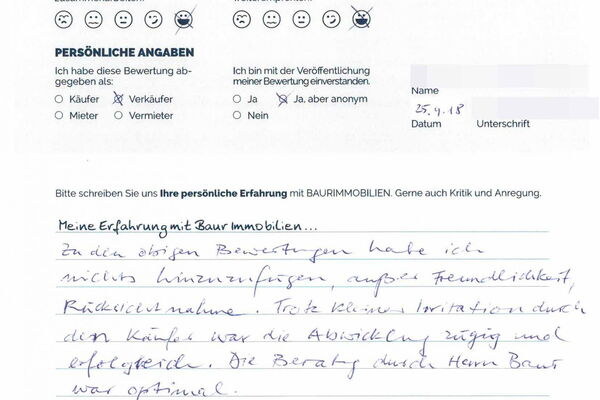 PERSÖNLICHE ANGABEN
Ich habe diese Bewertung ab-
gegeben als:
Käufer Verkäufer
Mieter Vermieter
Ich bin mit der Veröffentlichung
meiner Bewertung einverstanden.
Ja Ja, aber anonym
Nein
Name
25.4.18
Datum Unterschrift
Bitte schreiben Sie uns Ihre persönliche Erfahrung mit BAURIMMOBILIEN. Gerne auch Kritik und Anregung.
Meine Erfahrung mit Baur Immobilien...
Zu den obigen Bewertungen habe ich
nichts hinzuzufügen, außer Freundlichkeit,
Rücksichtnahme. Trotz kleiner Irritation durch
den Käufer war die Abwicklung zügig und
erfolgreich. Die Beratung durch Herrn Baur
war optimal.